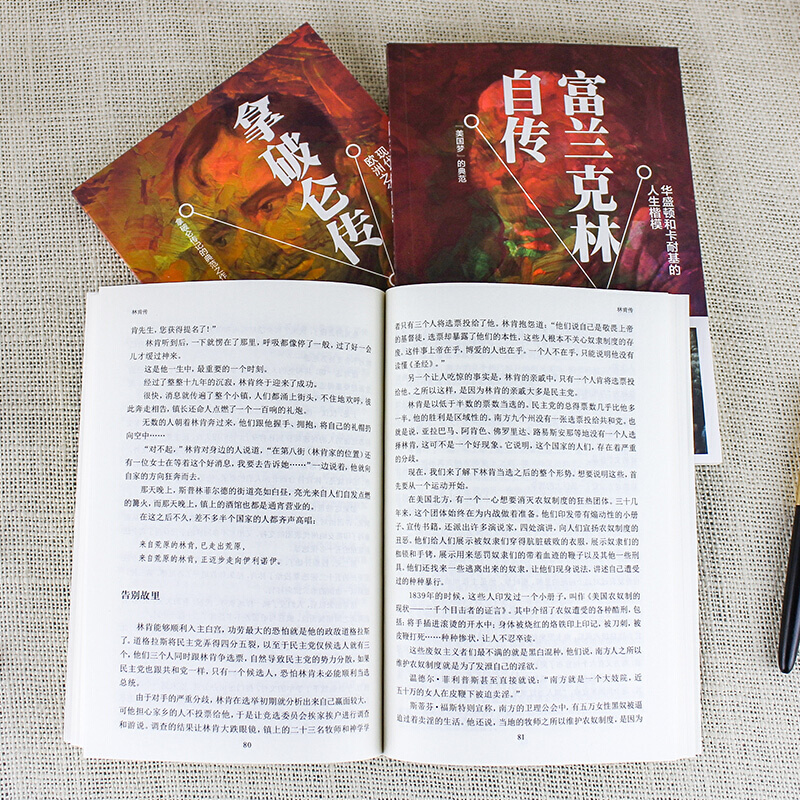 拿破仑传
富兰克林
自传
“美国梦”的典范
华盛顿和卡耐基的
人生楷模
林肯传
肯先生，您获得提名了！”
林肯听到后，一下就愣在了那里，呼吸都像停了一般，过了好一会
儿才缓过神来。
这是他一生中，最重要的一个时刻。
经过了整整十九年的沉寂，林肯终于迎来了成功。
很快，消息就传遍了整个小镇，人们都涌上街头，不住地欢呼，彼
此奔走相告，镇长还命人点燃了一个一百响的礼炮。
无数的人朝着林肯奔过来，他们跟他握手、拥抱，将自己的礼帽扔
向空中……
“对不起，”林肯对身边的人说道，“在第八街（林肯家的位置）还
有一位女士在等着这个好消息，我要去告诉她……”一边说着，他就向
自家的方向狂奔而去。
那天晚上，斯普林菲尔德的街道亮如白昼，亮光来自人们自发点燃
的篝火，而那天晚上，镇上的酒馆也都是通宵营业的。
在这之后不久，差不多半个国家的人都齐声高唱：
来自荒原的林肯，已走出荒原，
来自荒原的林肯，正迈步走向伊利诺伊。
告别故里
林肯能够顺利入主白宫，功劳最大的恐怕就是他的政敌道格拉斯
了。道格拉斯将民主党弄得四分五裂，以至于民主党仅候选人就有三
个，他们三个人同时跟林肯争选票，自然导致民主党的势力分散，如果
民主党也跟共和党一样，只有一个候选人，恐怕林肯未必能顺利当选
总统。
由于对手的严重分歧，林肯在选举初期就分析出来自己赢面较大，
可他担心家乡的人不投票给他，于是让竞选委员会挨家挨户进行调查
和游说。调查的结果让林肯大跌眼镜，镇上的二十三名牧师和神学学
80
林肯传
者只有三个人将选票投给了他。林肯抱怨道：“他们说自己是敬畏上帝
的基督徒，选票却暴露了他们的本性，这些人根本不关心奴隶制度的存
废。这件事上帝在乎，博爱的人也在乎，一个人不在乎，只能说明他没有
读懂《圣经》。”
另一个让人吃惊的事实是，林肯的亲戚中，只有一个人肯将选票投
给他。之所以这样，是因为林肯的亲戚大多是民主党。
林肯是以低于半数的票数当选的。民主党的总得票数几乎比他多
一半。他的胜利是区域性的，南方九个州没有一张选票投给共和党。也
就是说，亚拉巴马、阿肯色、佛罗里达、路易斯安那等地没有一个人选
择林肯，这可不是一个好现象。它说明，这个国家的人们，存在着严重
的分歧。
现在，我们来了解下林肯当选之后的整个形势。想要说明这些，首
先要从一个运动开始。
在美国北方，有一个一心想要消灭农奴制度的狂热团体。三十几
年来，这个团体始终在为内战做着准备。他们印发带有煽动性的小册
子、宣传书籍，还派出许多演说家，四处演讲，向人们宣扬农奴制度的
丑恶。他们给人们展示被奴隶们穿得肮脏破败的衣服，展示奴隶们的
枷锁和手铐，展示用来惩罚奴隶们的带着血迹的鞭子以及其他一些刑
具。他们还找来一些逃离出来的奴隶，让他们现身说法，讲述自己遭受
过的种种暴行。
1839年的时候，这些人印发过一个小册子，叫作《美国农奴制度的
现状——一千个目击者的证言》。其中介绍了农奴遭受的各种酷刑，包
括：将手插进滚烫的开水中；身体被烧红的烙铁印上印记，被刀刺，被
皮鞭打死……种种惨状，让人不忍卒读。
这些废奴主义者们最不满的就是黑白混种，他们说，南方人之所以
维护农奴制度就是为了发泄自己的淫欲。
温德尔·菲利普斯甚至直接就说：“南方就是一个大妓院，近
五十万的女人在皮鞭下被迫卖淫。”
斯蒂芬·福斯特则宣称，南方的卫理公会中，有五万女性黑奴被逼
迫过着卖淫的生活。他还说，当地的牧师之所以维护农奴制度，是因为
81